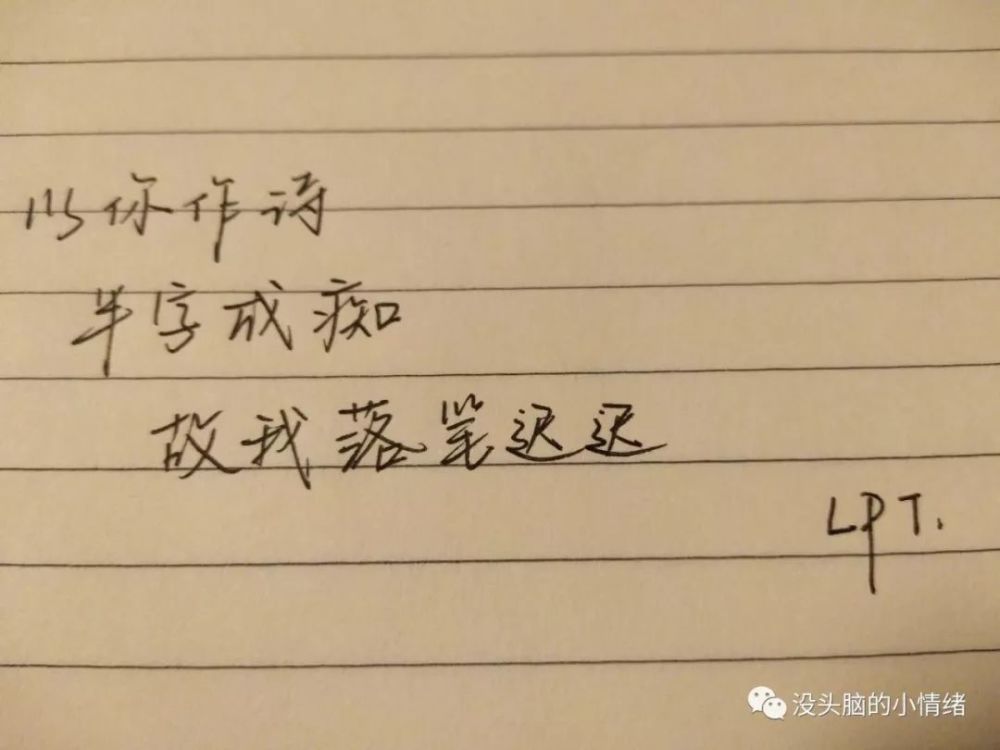 以你作诗
半字成痴
故我落笔迟迟
LPT.
没头脑的小情绪